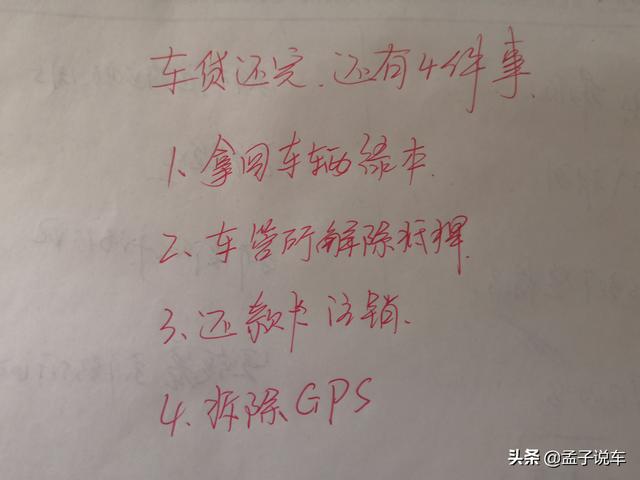 车贷还完、还有4件事
1、拿回车辆绿本
2、车管所解除抵押
3、还款卡注销
4、拆除GPS
头条 @孟子说车